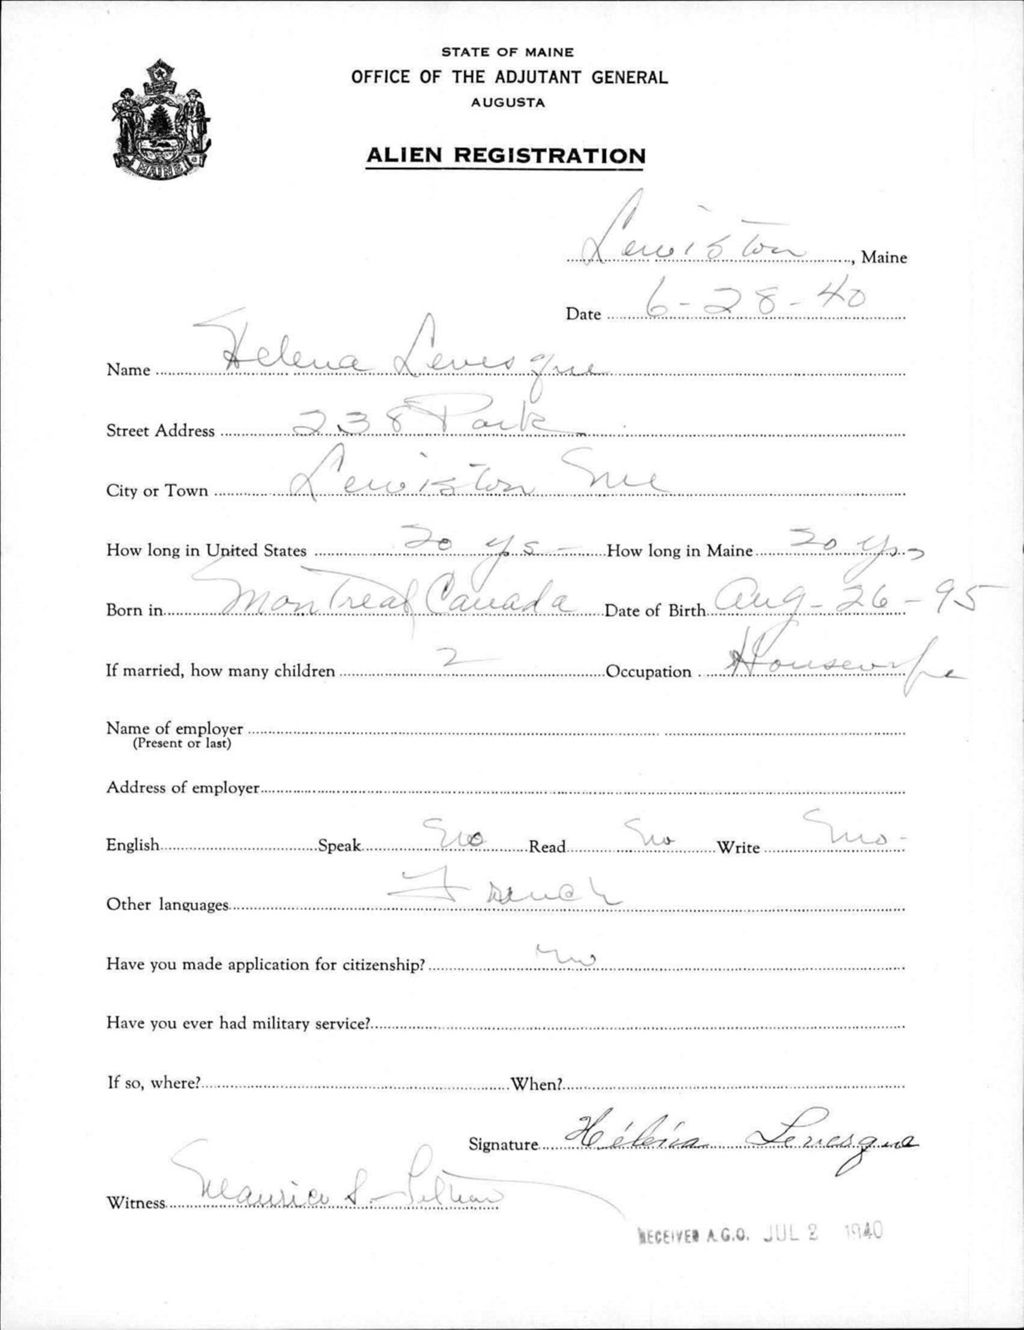 STATE OF MAINE
OFFICE OF THE ADJUTANT GENERAL
AUGUSTA
ALIEN REGISTRATION
MAINE
Lewiston, Maine
Date 6-28-40
Name Helena Levesque
Street Address 238 Park
City or Town Lewiston Me
How long in United States 20 ys - How long in Maine 20 ys
Born in Montreal Canada Date of Birth Aug-26-95
If married, how many children 2 Occupation Housewife
Name of employer
(Present or last)
Address of employer
English Speak No Read No Write No -
Other languages French
Have you made application for citizenship? no
Have you ever had military service?
If so, where? When?
Signature Héléna Levesque
Witness Maurice S.
RECEIVED A.G.O. JUL 2 1940